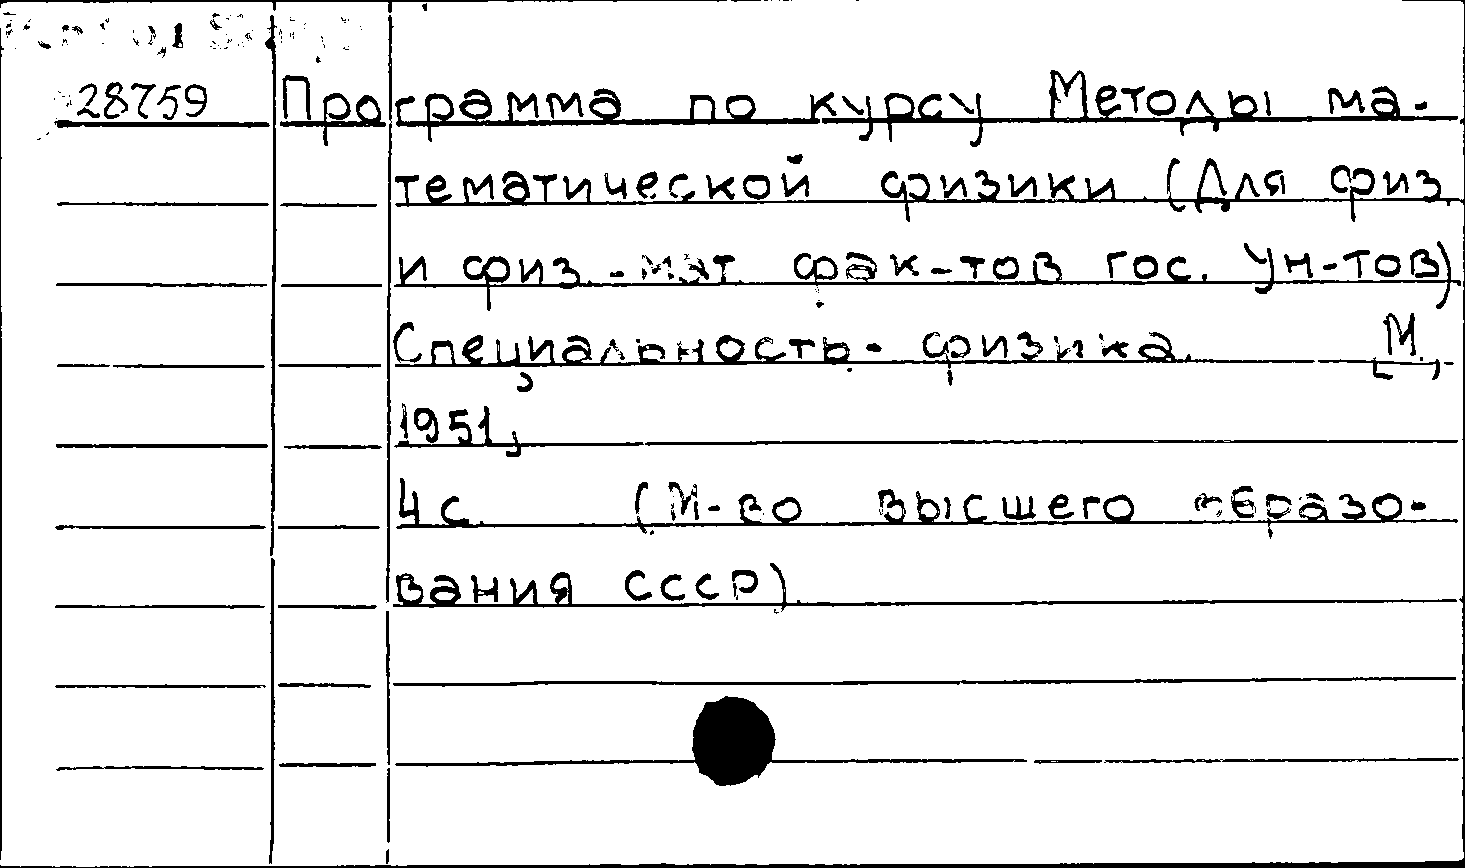 28759 Программа по курсу Методы ма-
тематической физики (Для физ.
и физ.-мат. фак-тов гос. ун-тов)
Специальность - физика. [М.,
1951,
4 с. (М-во высшего образо-
вания СССР).